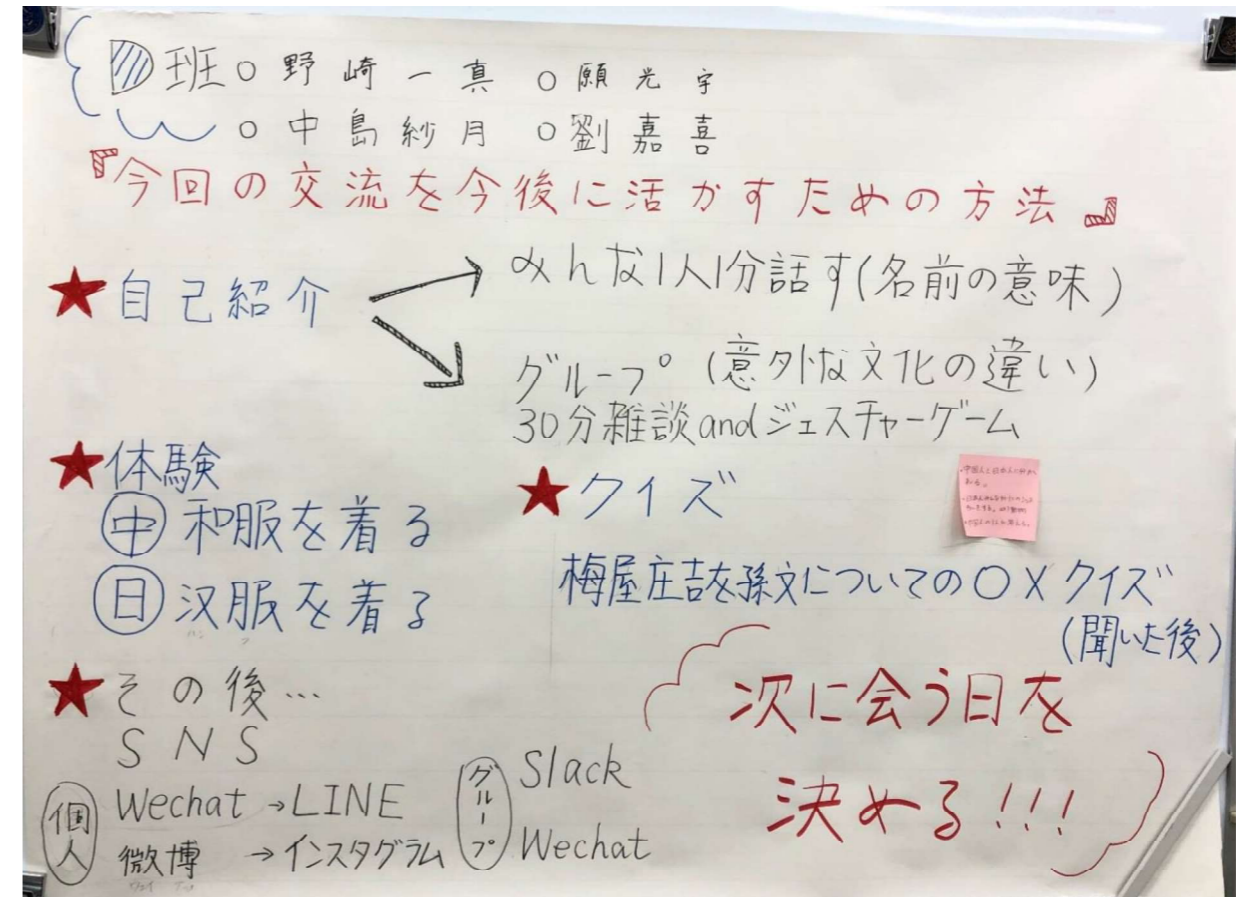 D班 ○野崎一真 ○願光宇
○中島紗月 ○劉嘉喜
『今回の交流を今後に活かすための方法』
★自己紹介
みんな1人1分話す(名前の意味)
グループ(意外な文化の違い)
30分雑談andジェスチャーゲーム
★体験
中 和服を着る
日 汉服を着る
★クイズ
梅屋庄吉を孫文についての○×クイズ
(聞いた後)
★その後…
SNS
個人
Wechat→LINE
微博→インスタグラム
グループ
Slack
Wechat
次に会う日を
決める!!!